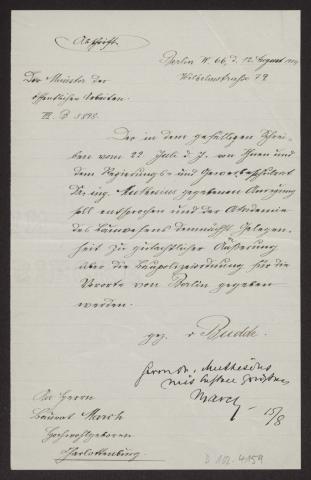 Abschrift.
Berlin W. 66, d. 12. August
Wilhelmstraße 79
Der Minister der
öffentlichen Arbeiten.
III. B 5898.
Der in dem gefälligen Schrei-
ben vom 22. Juli d. J. von Ihnen und
dem Regierungs- und Gewerbeschulrat
Dr. ing. Muthesius gegebenen Anregung
soll entsprochen und der Akademie
des Bauwesens demnächst Gelegen-
heit zu gutachtlicher Äußerung
über die Baupolizeiordnung für die
Vororte von Berlin gegeben
werden.
gez. v Budde.
Herrn Dr. Muthesius
mit bestem
March
15/8
An Herrn
Baurat March
Hochwohlgeboren
Charlottenburg.
D 102-4159